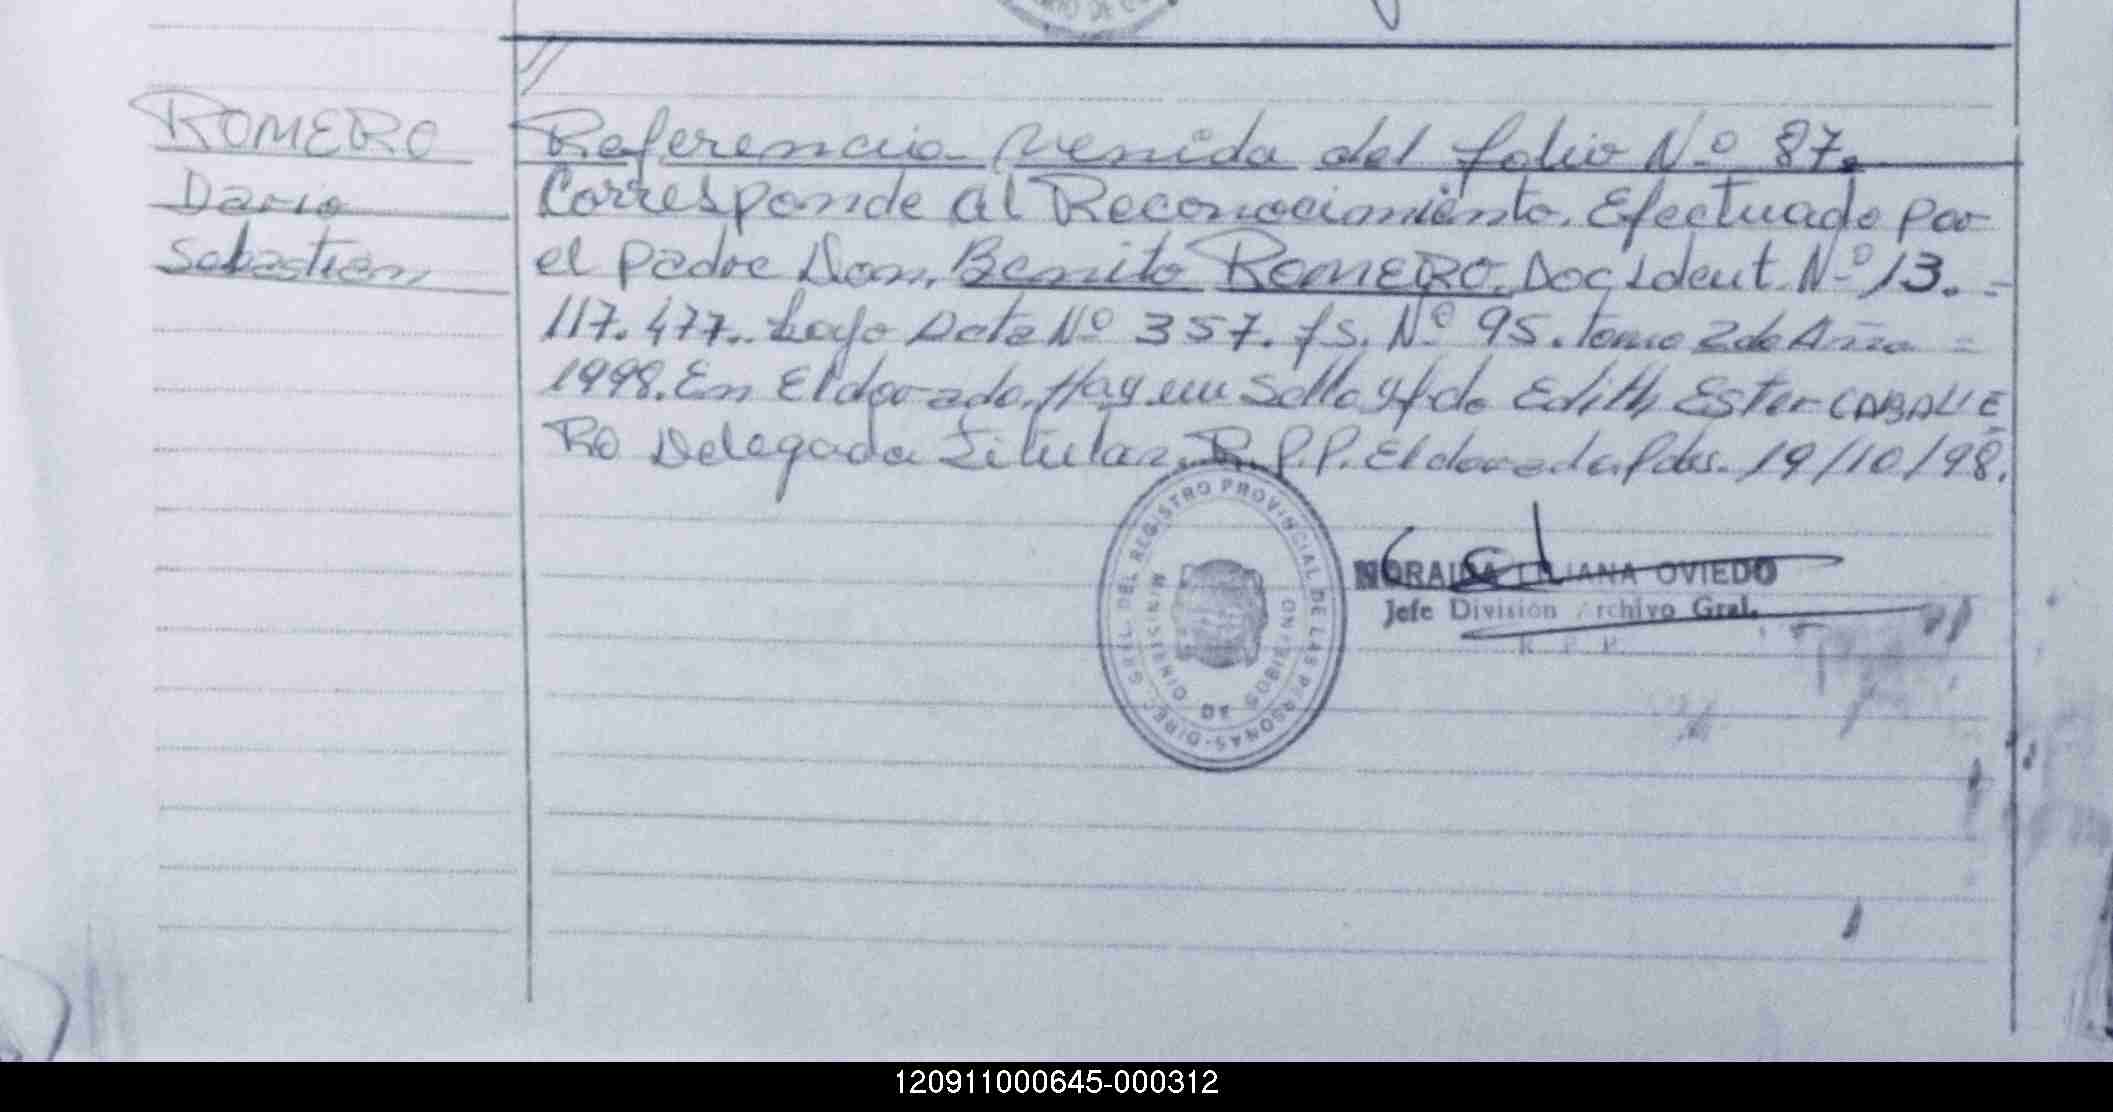 ROMERO
Dario
Sebastian
Referencia venida del folio Nº 87.
Corresponde al Reconocimiento. Efectuado por
el padre Don. Benito ROMERO. Doc Ident. Nº 13.-
117.477.. bajo Acta Nº 357. fs. Nº 95. tomo 2 de Año =
1998. En Eldorado. Hay un Sello y fdo Edith Ester CABALLE
RO Delegada Titular. R.P.P. Eldorado Pdas. 19/10/98.
DIREC. GRAL. DEL REGISTRO PROVINCIAL DE LAS PERSONAS
LILIANA OVIEDO
Jefe División Archivo Gral.
R. P. P.
120911000645-000312